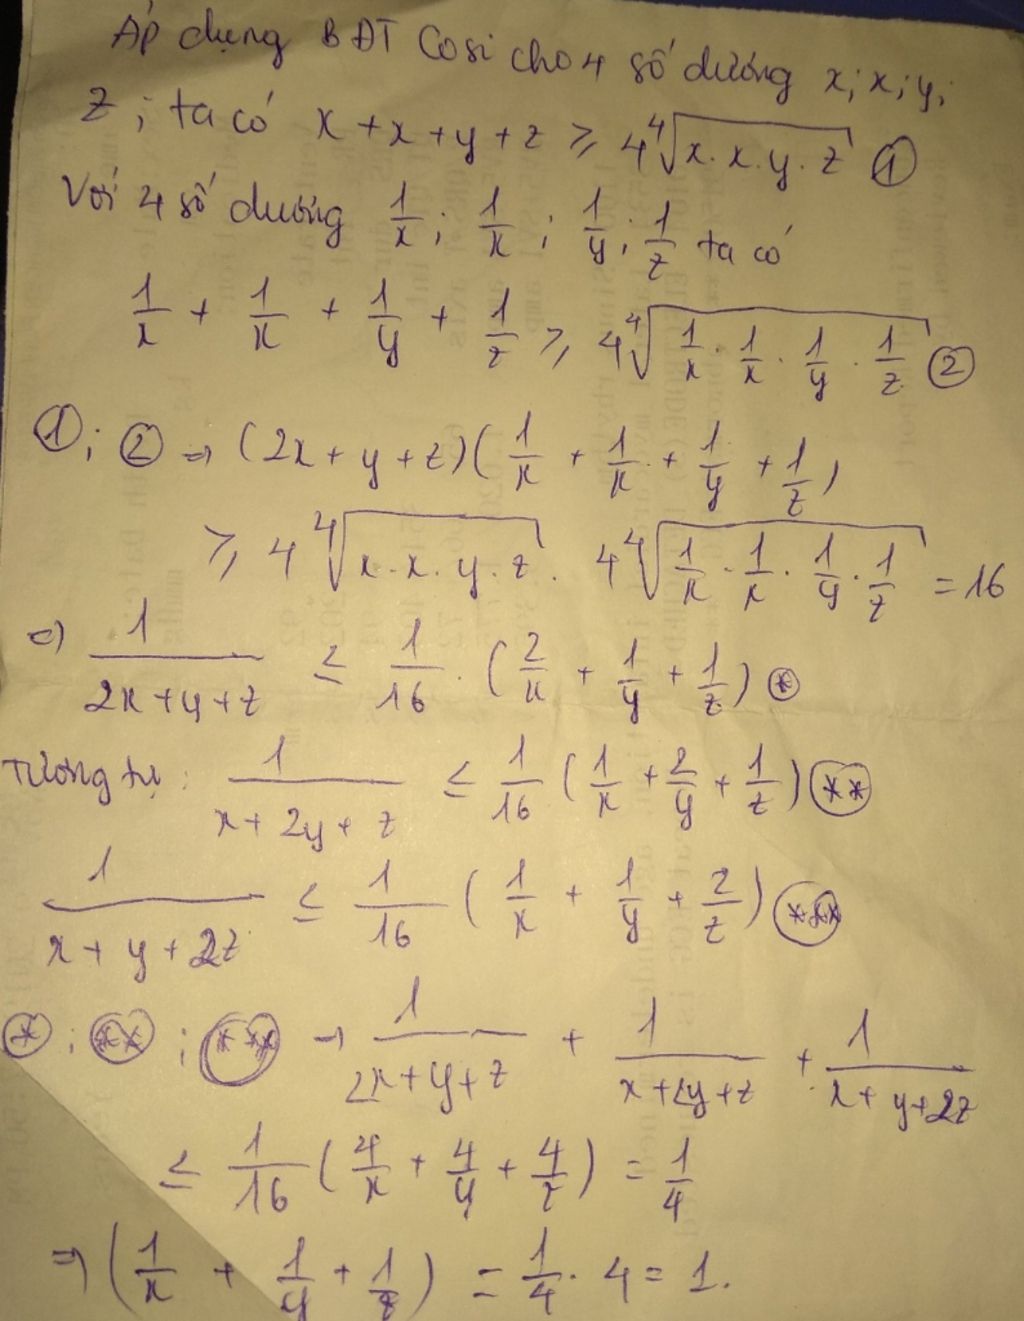 Áp dụng BĐT Cosi cho 4 số dương x; x; y;
z; ta có x + x + y + z ≥ 4∜(x.x.y.z) ①
Với 4 số dương 1/x; 1/x; 1/y; 1/z ta có
1/x + 1/x + 1/y + 1/z ≥ 4∜(1/x · 1/x · 1/y · 1/z) ②
①; ② ⇒ (2x + y + z)(1/x + 1/x + 1/y + 1/z)
≥ 4∜(x.x.y.z) . 4∜(1/x · 1/x · 1/y · 1/z) = 16
⇒ 1/(2x+y+z) ≤ 1/16 · (2/x + 1/y + 1/z) (*)
Tương tự: 1/(x+2y+z) ≤ 1/16 (1/x + 2/y + 1/z) (**)
1/(x+y+2z) ≤ 1/16 (1/x + 1/y + 2/z) (***)
(*); (**); (***) → 1/(2x+y+z) + 1/(x+2y+z) + 1/(x+y+2z)
≤ 1/16 (4/x + 4/y + 4/z) = 1/4
⇒ (1/x + 1/y + 1/z) = 1/4 · 4 = 1.